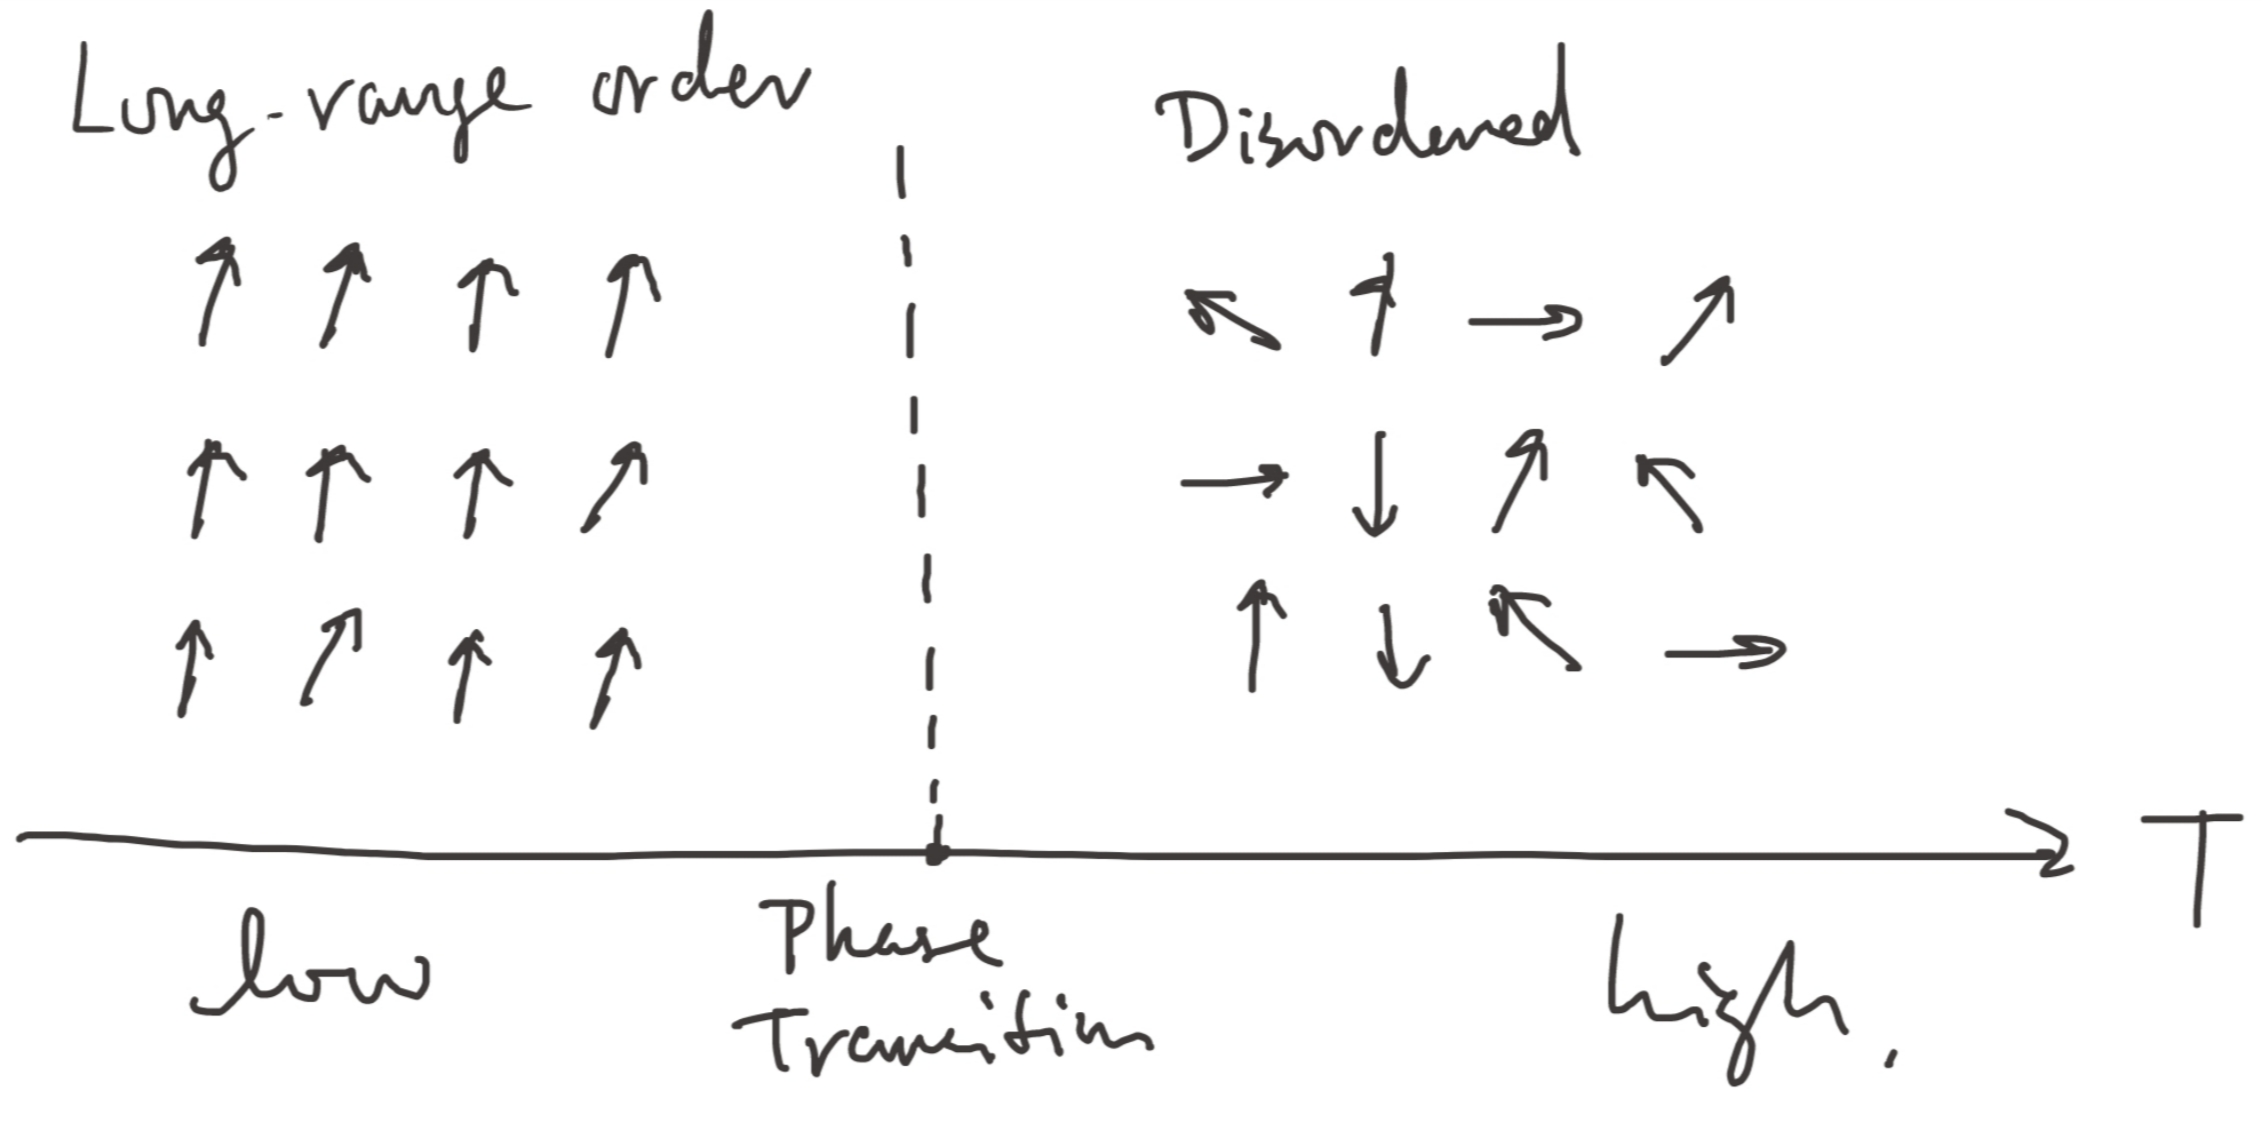 Long-range order
Disordered
T
low
Phase
Transition
high.